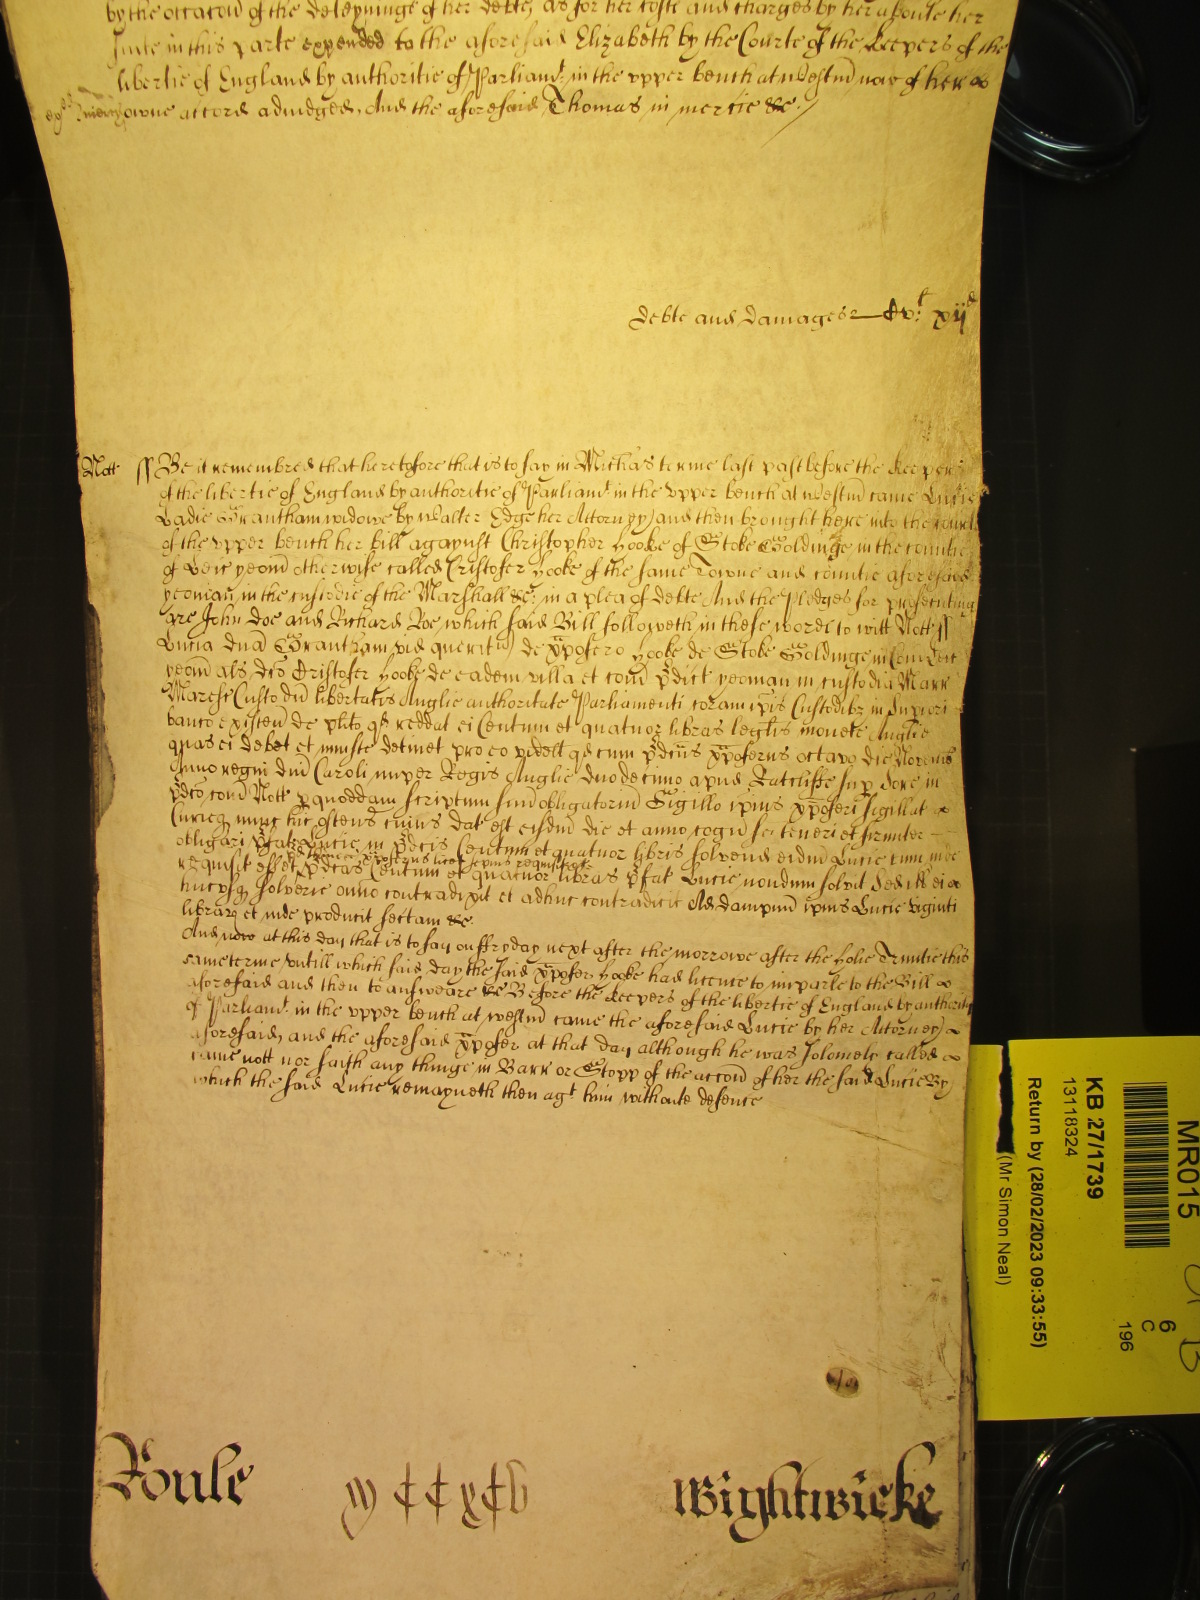 by the occacon of the deteyninge of her debte, as for her costs and charges by her aboute her
suite in this parte expended to the aforesaid Elizabeth by the Courte of the Keepers of the
libertie of England by authoritie of Parliamt. in the vpper bench at Westm now of her
owne accord adiudged, And the aforesaid Thomas in mercie &c.
debte and damages Cvl xijd
Nott ss Be it remembred that heretofore that is to say in Michas terme last past before the Keepers
of the libertie of England by authoritie of Parliamt in the vpper bench at Westm came Lucie
Ladie Grantham widowe by Walter Edge her Attorney and then brought here into the Court
of the vpper bench her bill against Christopher Hooke of Stoke Goldinge in the countie
of Leic yeom otherwise called Cristofer Hooke of the same Towne and countie aforesaid
yeoman, in the custodie of the Marshall &c: in a plea of debte And the Pledges for prosecuting
are John Doe and Richard Roe, which said Bill followeth in these words to witt Nott ss
Lucia dna Grantham vid queritr de Xpofero Hooke de Stoke Goldinge in Com Leic
yeom als dco Cristofer Hooke de eadem villa et com pdict yeoman in custodia Marr
Maresc Custodu libertatis Anglie authoritate Parliamenti coram ipis Custodibz in Supiori
banco existen de plito qd reddat ei Centum et quatuor libras leglis monete Anglie
quas ei debet et iniuste detinet pro eo videlt qd cum pdcus Xpoferus octavo die Novemb
Anno regni dni Caroli nuper Regis Anglie duodecimo apud Ratcliffe sup Sore in
pdco com Nott p quoddam scriptum suu obligatoriu Sigillo ipius Xpoferi sigillat
Curieq nunc hic ostens cuius dat est eisdm die et anno cogn se teneri et firmiter
obligari pfat Lucie in pdcis Centum et quatuor libris solvend eidm Lucie cum inde
requisit esset pdcus tamen Xpoferus licet sepius requisit
pdcas Centum et quatuor libras pfat Lucie nondum solvit sed ill ei
hucusq solvere omnino contradixit et adhuc contradicit Ad dampnu ipius Lucie viginti
librar et inde producit sectam &c.
And now at this day that is to say on ffryday next after the morrowe after the holie Trinitie this
same terme vntill which said day the said Xpofer Hooke had licence to imparle to the Bill
aforesaid and then to answeare &c Before the Keepers of the libertie of England by authority
of Parliamt. in the vpper bench at Westm came the aforesaid Lucie by her Attorney
aforesaid, and the aforesaid Xpofer at that day although he was solemely called
came nott nor saith any thinge in Barr or Stopp of the accon of her the said Lucie By
which the said Lucie remayneth then agt him withoute defence
Roule
Wightwicke
MR015
KB 27/1739
13118324
Return by (28/02/2023 09:33:55)
(Mr Simon Neal)
6
C
196